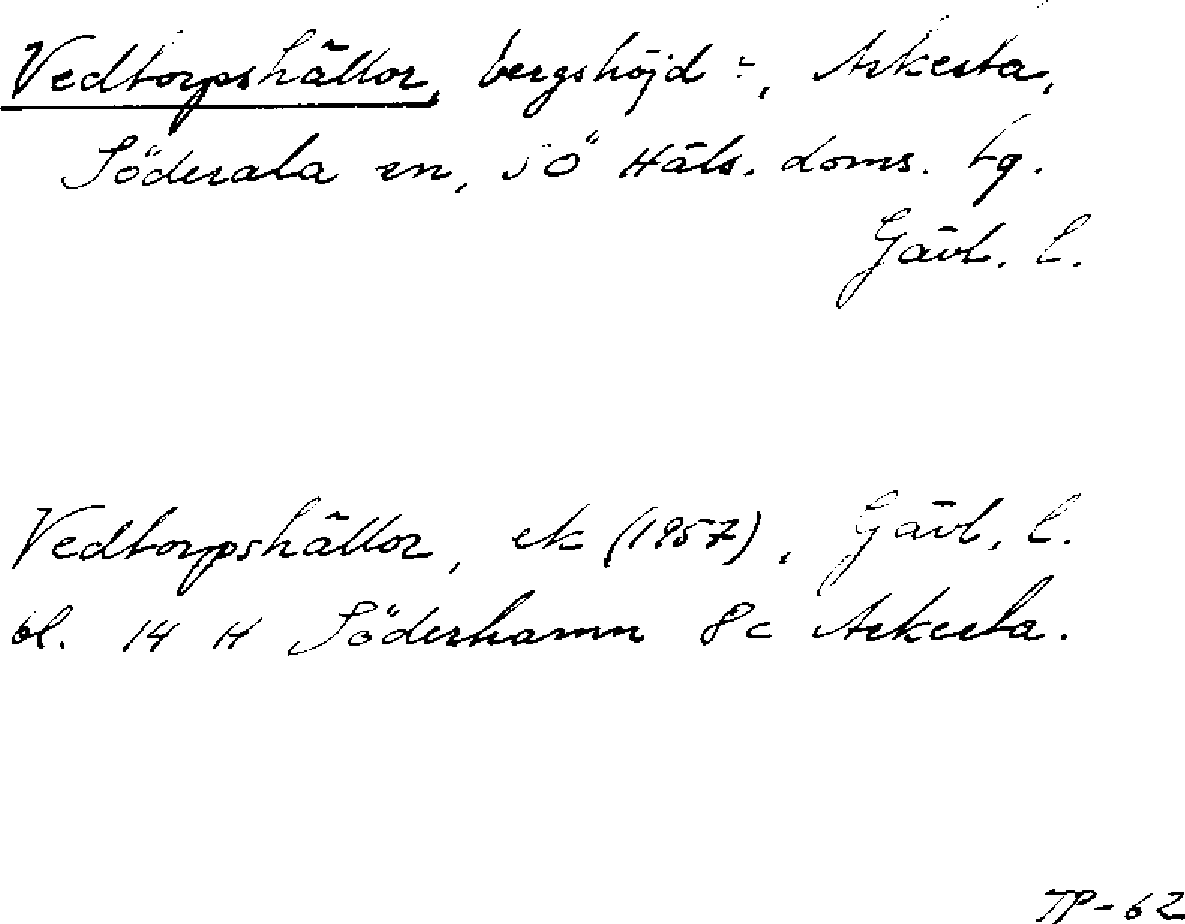 Vedtorpshällor, bergshöjd -, Arkesta,
Söderala sn, SÖ Häls. doms. tg.
Gävl. l.
Vedtorpshällor, ek (1957), Gävl. l.
bl. 14 H Söderhamn 8c Arkesta.
TP-62